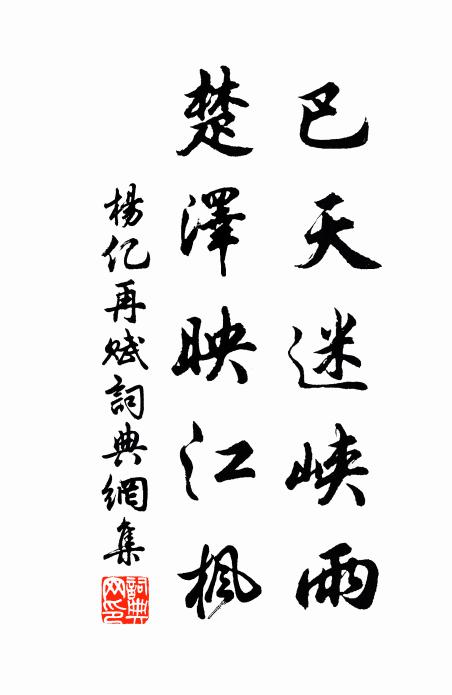 巴天迷峡雨
楚澤映江楓
楊亿再赋詞典網集
詞典
网印